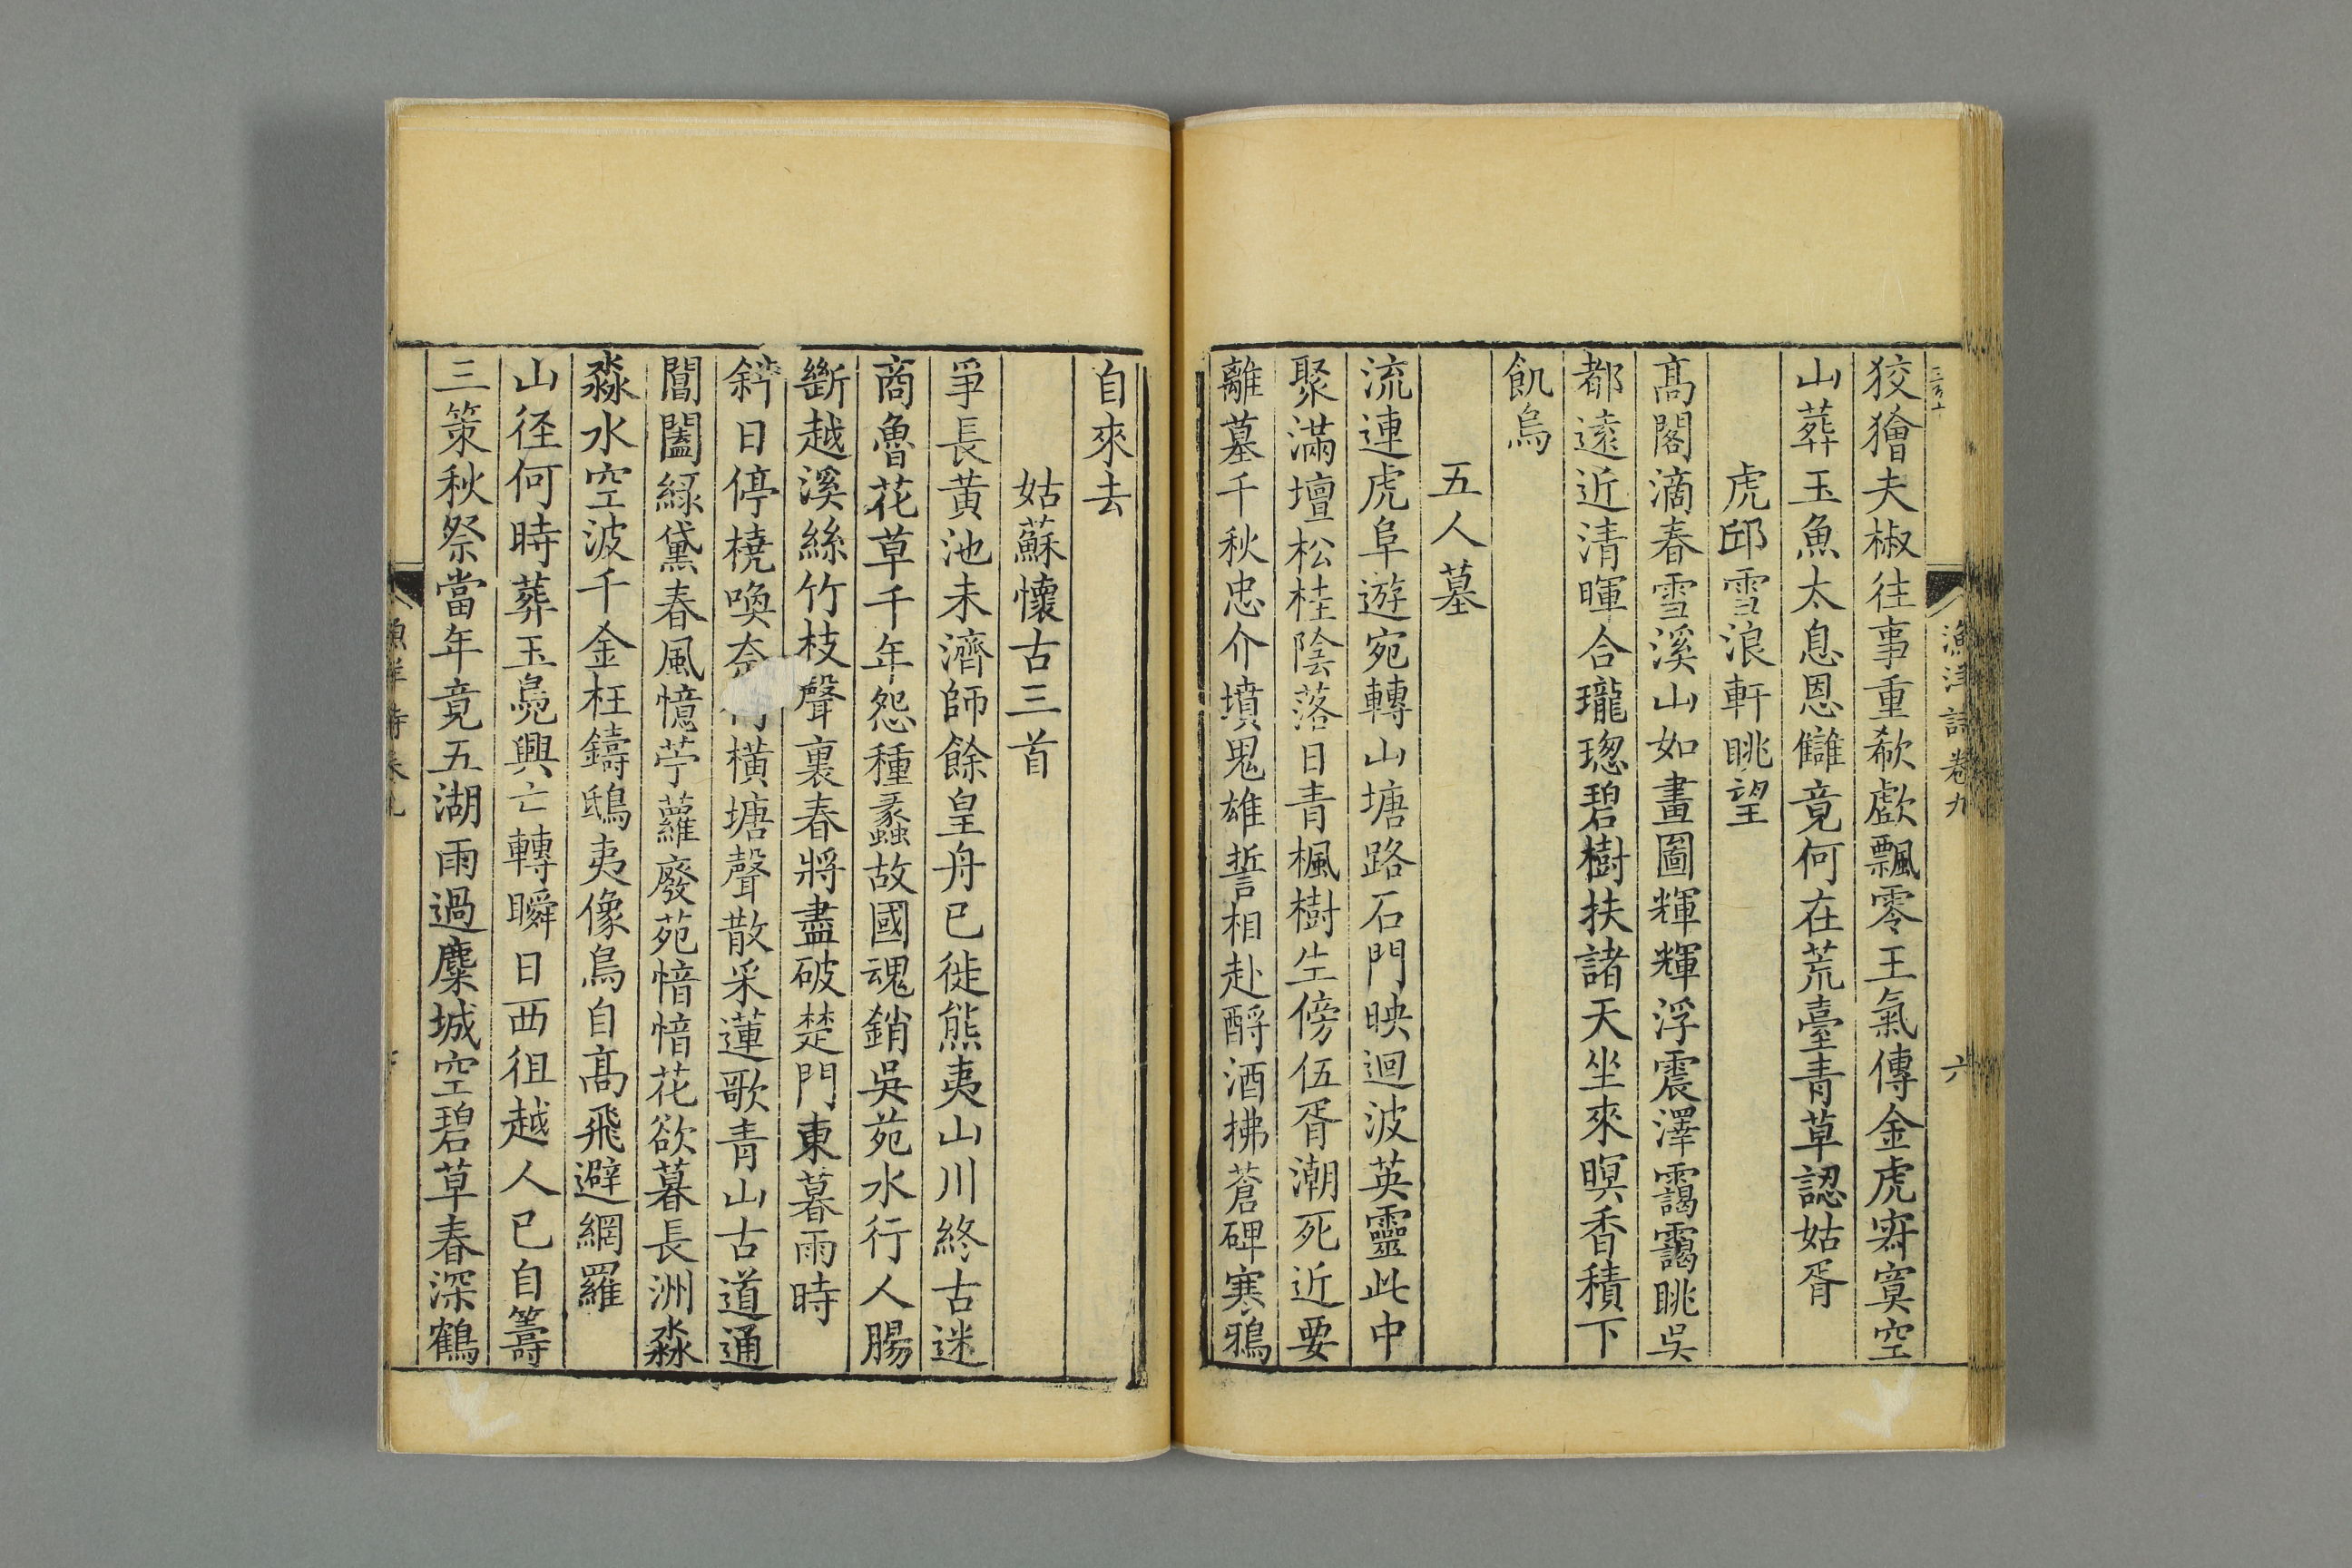 漁洋詩卷九
六
狡獪夫椒往事重欷歔飄零王氣傳金虎寂寞空
山葬玉魚太息恩讎竟何在荒臺青草認姑胥
虎邱雪浪軒眺望
高閣滴春雪溪山如畫圖輝輝浮震澤靄靄眺吳
都遠近清暉合瓏璁碧樹扶諸天坐來暝香積下
飢烏
五人墓
流連虎阜遊宛轉山塘路石門映迴波英靈此中
聚滿壇松桂陰落日青楓樹生傍伍胥潮死近要
離墓千秋忠介墳鬼雄誓相赴酹酒拂蒼碑寒鴉
自來去
姑蘇懷古三首
爭長黃池未濟師餘皇舟已徙熊夷山川終古迷
商魯花草千年怨種蠡故國魂銷吳苑水行人腸
斷越溪絲竹枝聲裏春將盡破楚門東暮雨時
斜日停橈喚横塘聲散采蓮歌青山古道通
閶闔綠黛春風憶苧蘿廢苑愔愔花欲暮長洲淼
淼水空波千金枉鑄鴟夷像烏自高飛避網羅
山徑何時葬玉鳧興亡轉瞬日西徂越人已自籌
三策秋祭當年竟五湖雨過麋城空碧草春深鶴